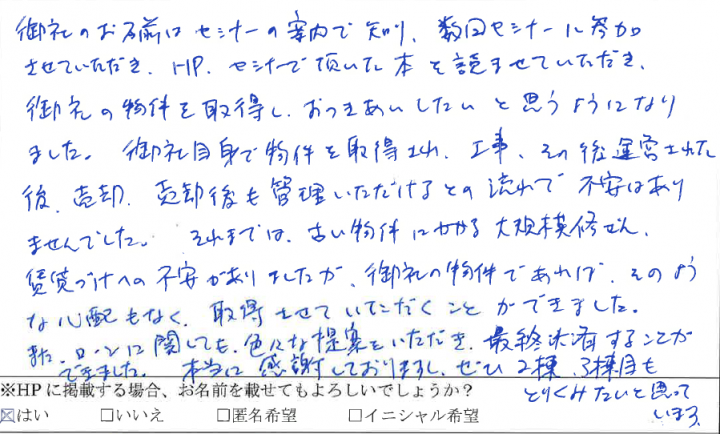 御礼のお名前はセミナーの案内で知り、数回セミナーに参加
させていただき、HP、セミナーで頂いた本を読ませていただき、
御礼の物件を取得し、おつきあいしたいと思うようになり
ました。御礼自身で物件を取得され、工事、その後運営された
後、売却、売却後も管理いただけるとの流れで不安はあり
ませんでした。それまでは、古い物件にかかる大規模修ぜん、
賃貸づけへの不安がありましたが、御礼の物件であれば、そのよう
な心配もなく、取得させていただくことができました。
また、ローンに関しても、色々な提案をいただき、最終決済することが
できました。本当に感謝しておりますし、ぜひ2棟、3棟目も
とりくみたいと思って
います。
※HPに掲載する場合、お名前を載せてもよろしいでしょうか？
☒はい □いいえ □匿名希望 □イニシャル希望